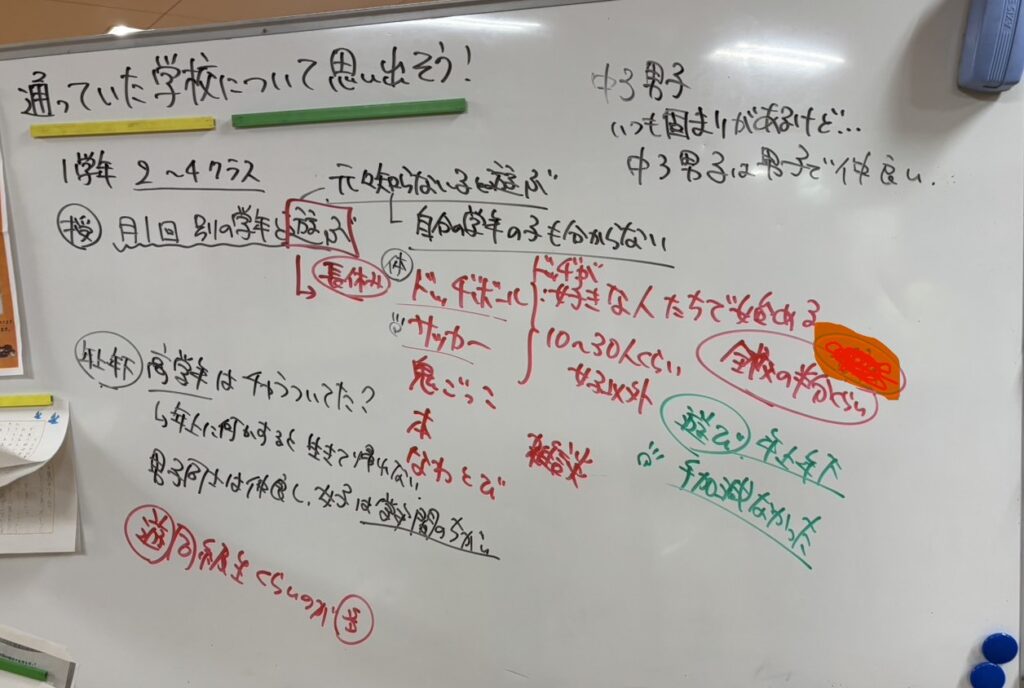 通っていた学校について思い出そう!
中3男子
いつも固まりがあるけど…
中3男子は男子で仲良い.
1学年 2〜4クラス
元々知らない子とも遊ぶ
授 月1回 別の学年と遊ぶ
自分の学年の子も分からない
長休み
体
ドッヂボール
サッカー
鬼ごっこ
本
なわとび
雑談
ドッヂが
好きな人たちで始める
10〜30人くらい
女子以外
全校の半分くらい
年上年下 高学年はチャラついてた?
年上に何かすると生きて帰れない
男子同士は仲良し、女子は
遊び 年上年下
手加減なかった
遊 同級生くらいのが